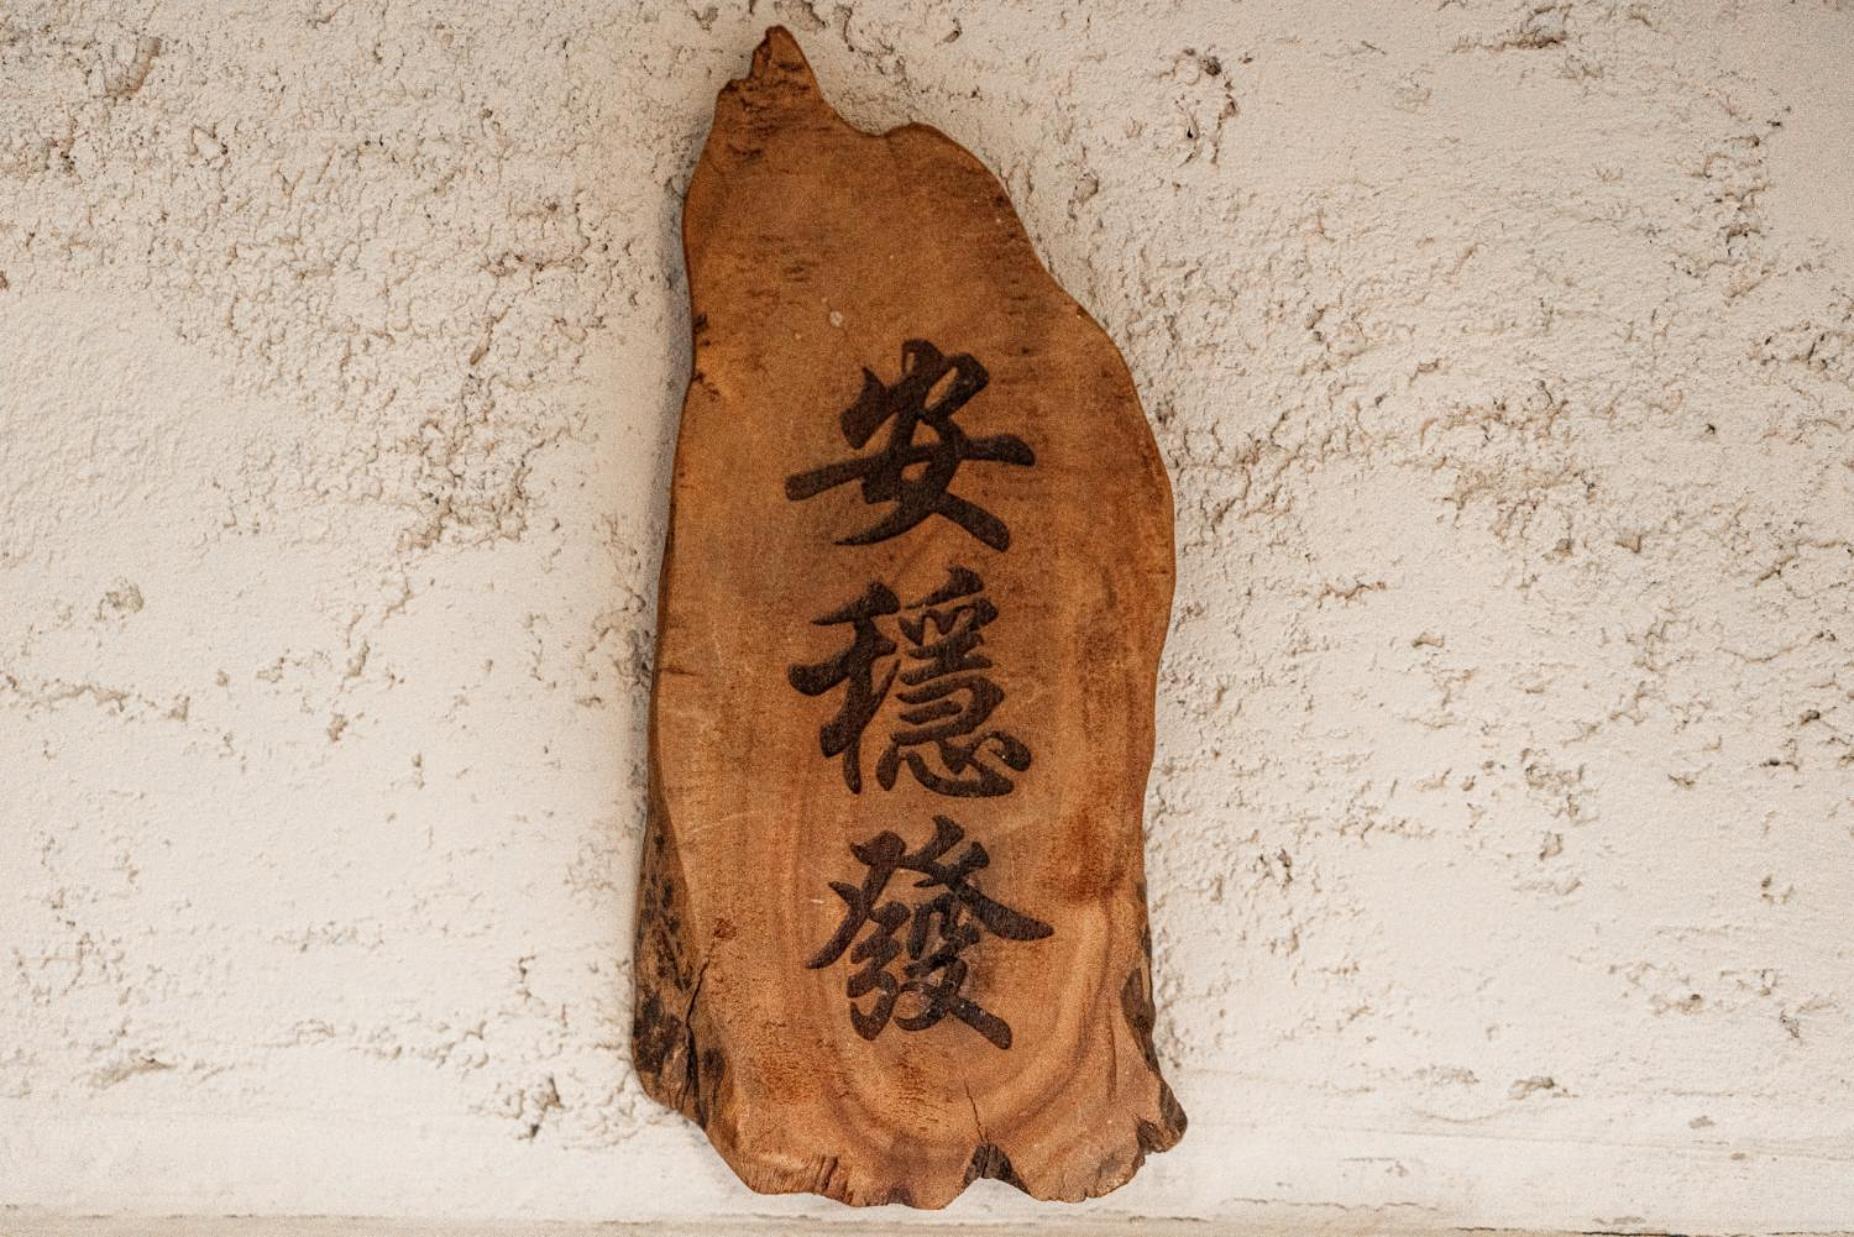 安穩發